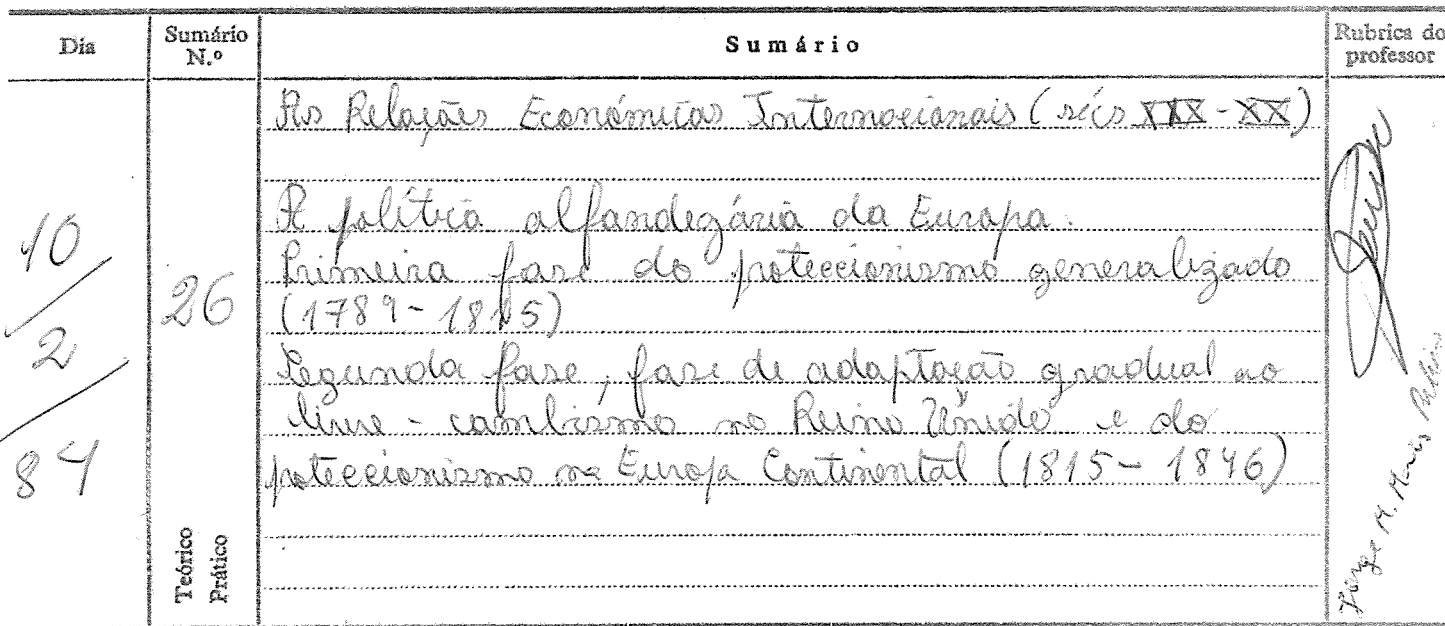 Dia
Sumário N.º
Sumário
Rubrica do professor
As Relações Económicas Internacionais (sécs XIX-XX)
A política alfandegária da Europa.
Primeira fase do proteccionismo generalizado
(1789-1815)
Segunda fase, fase de adaptação gradual ao
livre-cambismo no Reino Unido e do
poteccionismo na Europa Continental (1815-1846)
10/2/84
26
Teórico
Prático
Jorge M.